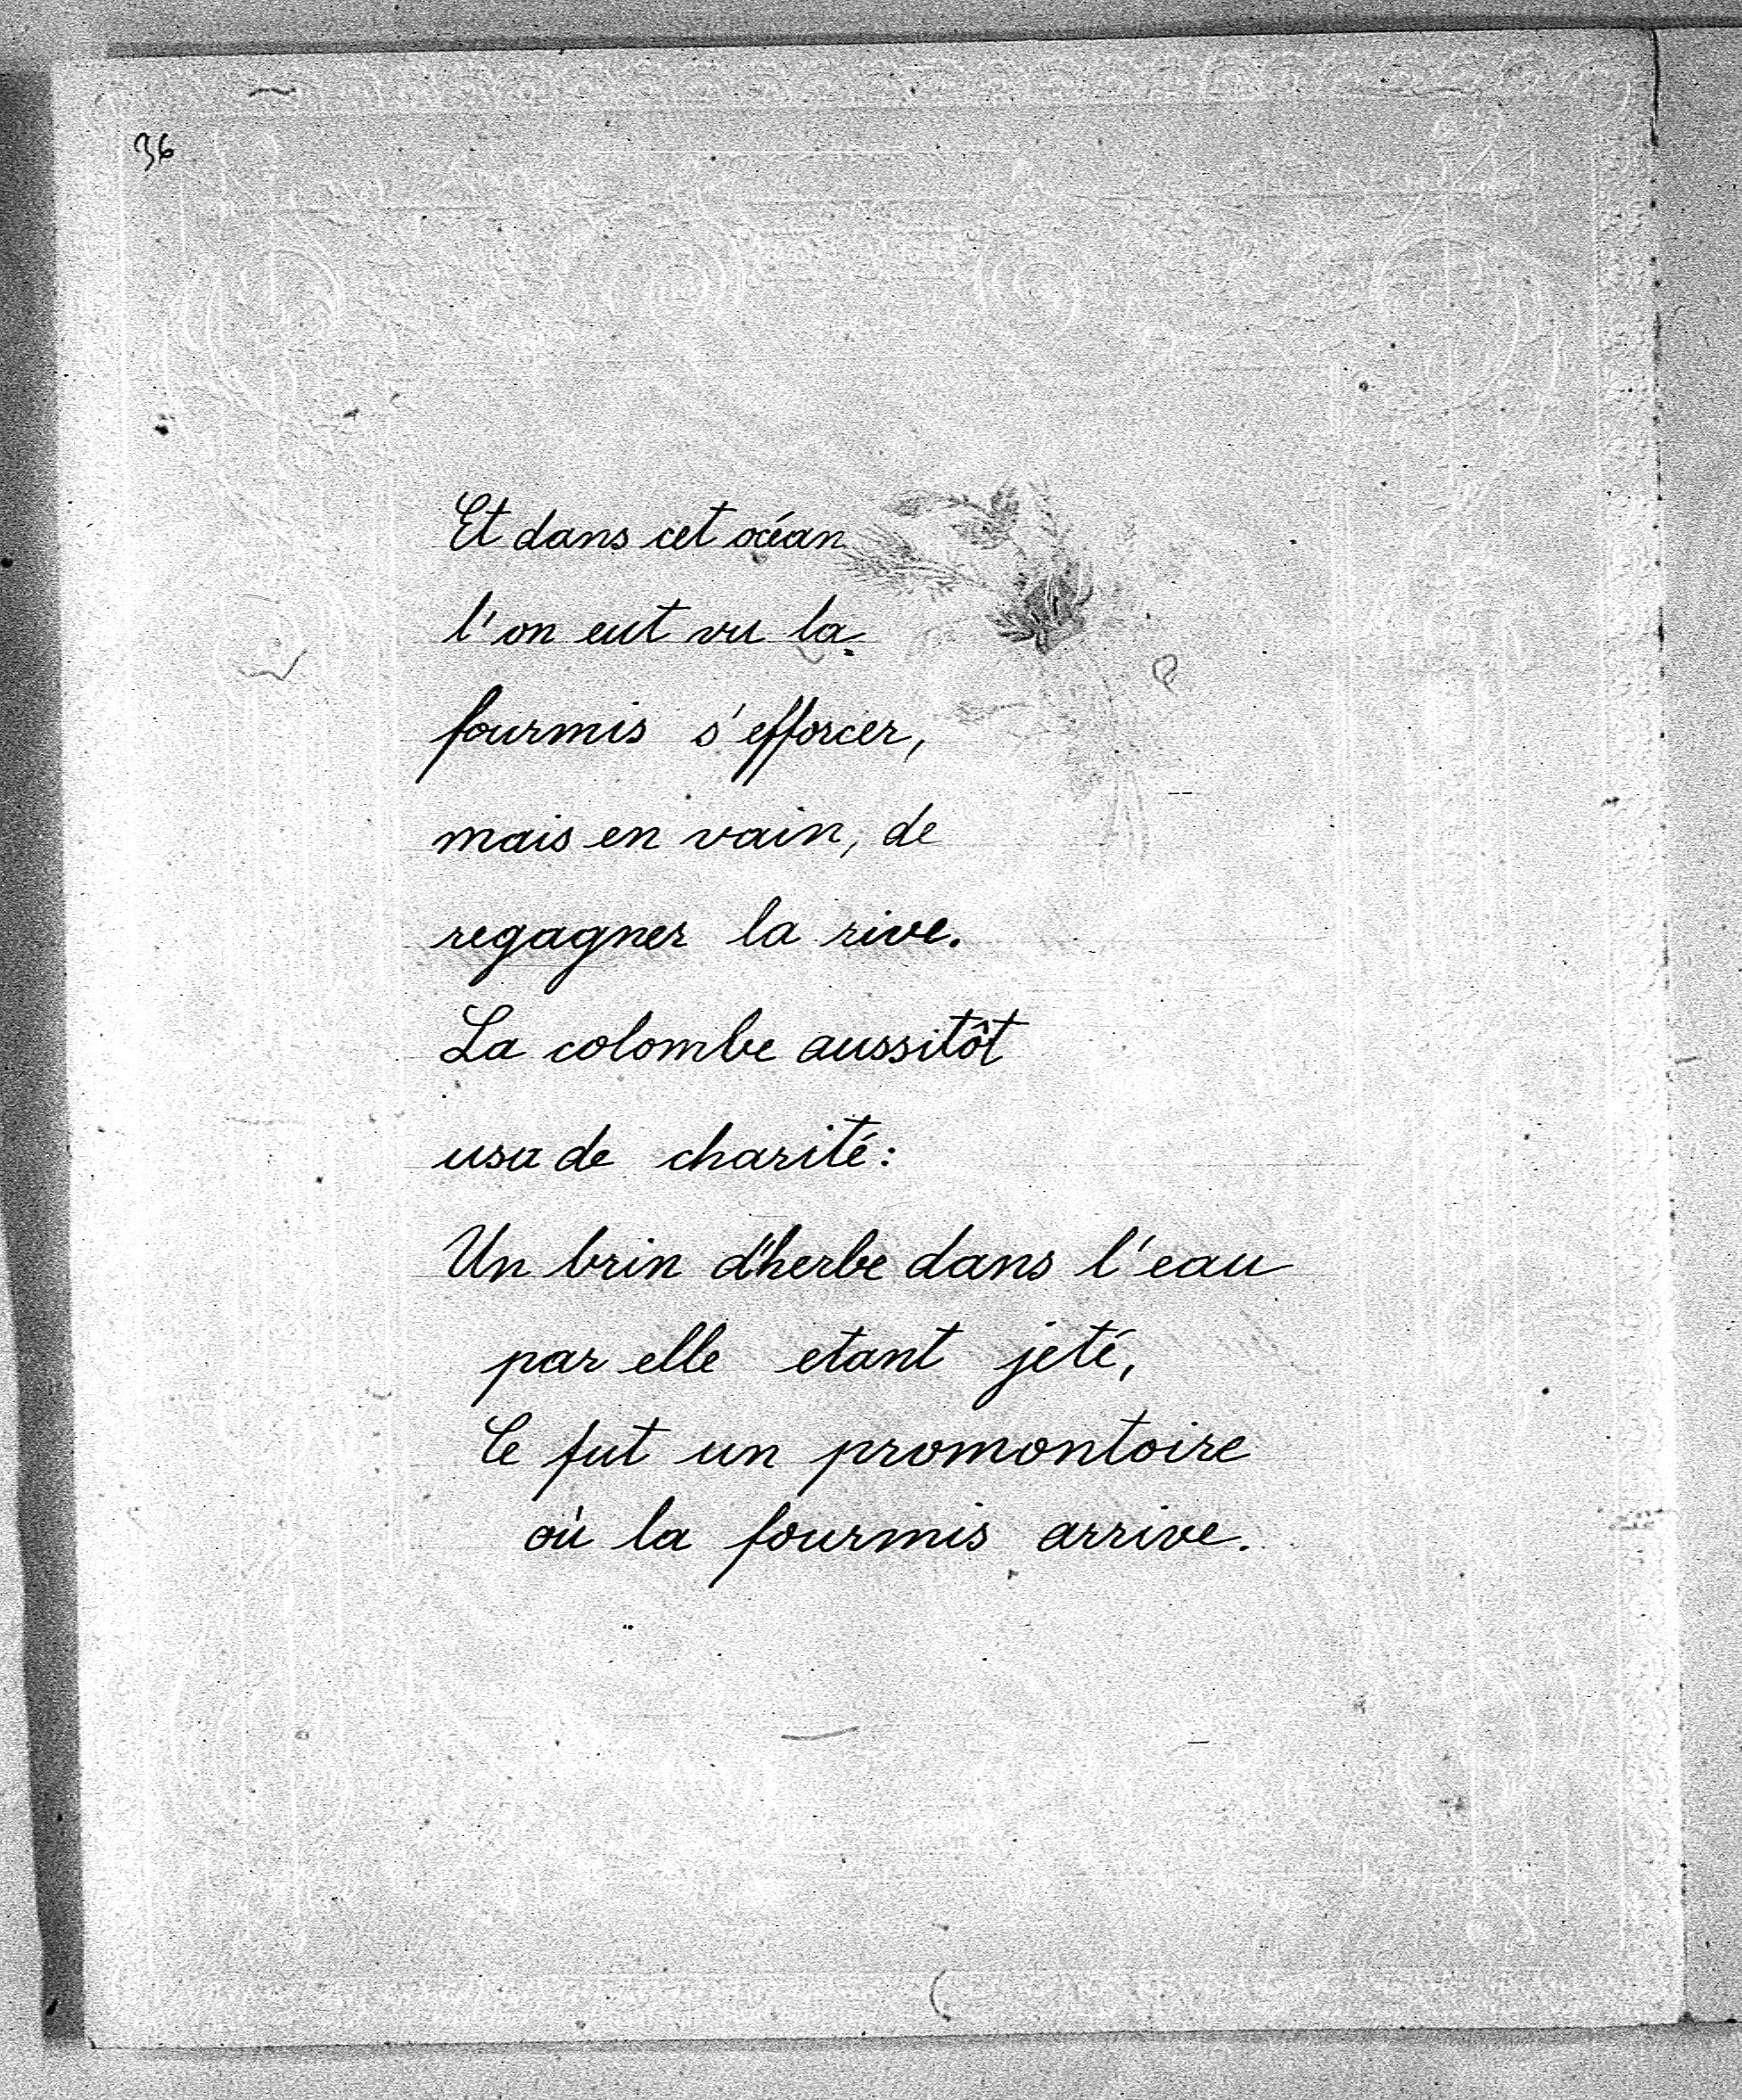 36
Et dans cet océan
l'on eut vu la
fourmis s'efforcer,
mais en vain, de
regagner la rive.
La colombe aussitôt
usa de charité:
Un brin d'herbe dans l'eau
par elle etant jeté,
Ce fut un promontoire
où la fourmis arrive.